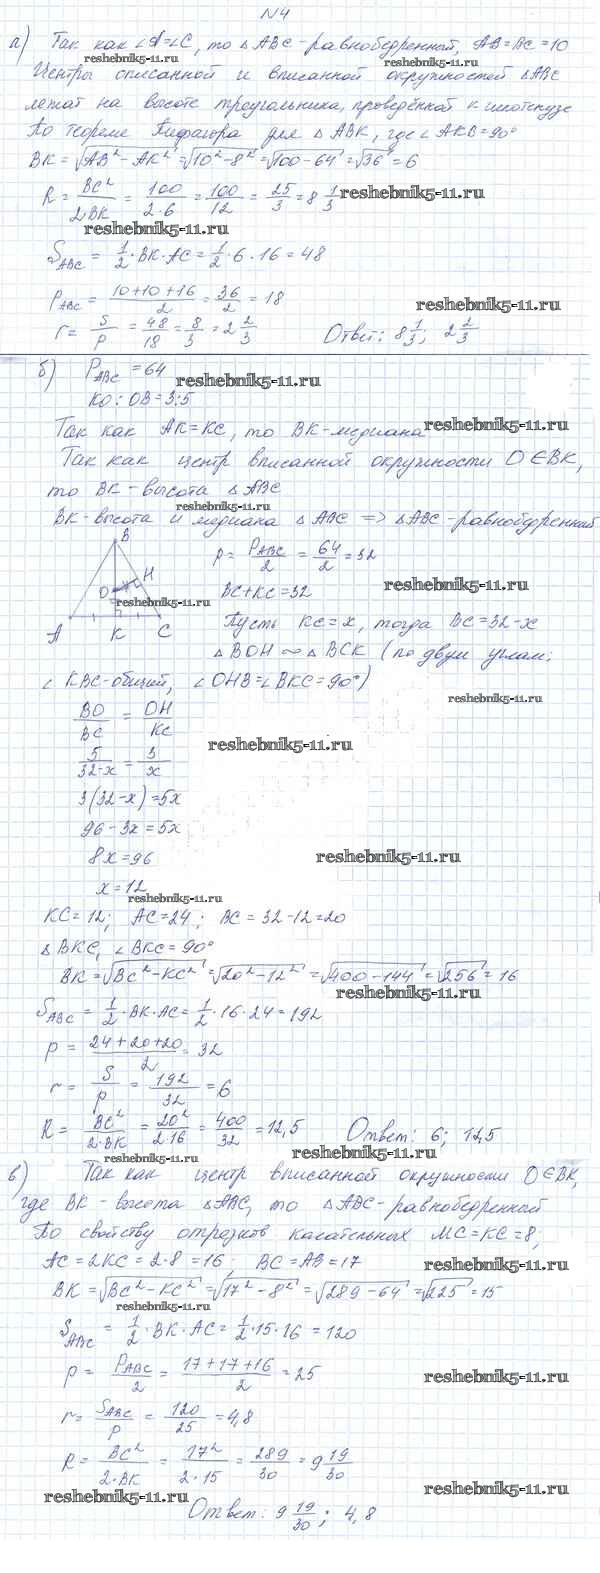 N4
а) Так как ∠A=∠C, то △ABC - равнобедренный, AB=BC=10
reshebnik5-11.ru reshebnik5-11.ru
Центры описанной и вписанной окружностей △ABC
лежат на высоте треугольника, проведённой к гипотенузе
По теореме Пифагора для △ABK, где ∠AKB=90°
BK = √(AB² - AK²) = √(10² - 8²) = √(100 - 64) = √36 = 6
R = BC²/2BK = 100/2·6 = 100/12 = 25/3 = 8 1/3 reshebnik5-11.ru
reshebnik5-11.ru
S_ABC = 1/2 · BK · AC = 1/2 · 6 · 16 = 48
P_ABC = 10+10+16/2 = 36/2 = 18 reshebnik5-11.ru
r = S/P = 48/18 = 8/3 = 2 2/3 Ответ: 8 1/3; 2 2/3
б) P_ABC = 64 reshebnik5-11.ru
KO : OB = 3:5
Так как AK=KC, то BK - медиана reshebnik5-11.ru
Так как центр вписанной окружности O∈BK,
то BK - высота △ABC
reshebnik5-11.ru
BK - высота и медиана △ABC => △ABC - равнобедренный
B
p = P_ABC/2 = 64/2 = 32
H
O
BC+KC=32 reshebnik5-11.ru
reshebnik5-11.ru
A K C
Пусть KC=x, тогда BC=32-x
△BOH ∾ △BCK (по двум углам:
∠KBC - общий, ∠OHB=∠BKC=90°)
reshebnik5-11.ru
BO/BC = OH/KC
reshebnik5-11.ru
5/32-x = 3/x
3(32-x)=5x
96-3x=5x
8x=96 reshebnik5-11.ru
x=12
reshebnik5-11.ru
KC=12; AC=24; BC=32-12=20
△BKC, ∠BKC=90°
BK = √(BC² - KC²) = √(20² - 12²) = √(400 - 144) = √256 = 16
reshebnik5-11.ru
S_ABC = 1/2 · BK · AC = 1/2 · 16 · 24 = 192
p = 24+20+20/2 = 32
r = S/p = 192/32 = 6
R = BC²/2·BK = 20²/2·16 = 400/32 = 12,5 Ответ: 6; 12,5
reshebnik5-11.ru reshebnik5-11.ru
в) Так как центр вписанной окружности O∈BK,
где BK - высота △ABC, то △ABC - равнобедренный
По свойству отрезков касательных MC=KC=8;
AC=2KC=2·8=16, BC=AB=17 reshebnik5-11.ru
BK = √(BC² - KC²) = √(17² - 8²) = √(289 - 64) = √225 = 15
reshebnik5-11.ru
S_ABC = 1/2 · BK · AC = 1/2 · 15 · 16 = 120
p = P_ABC/2 = 17+17+16/2 = 25 reshebnik5-11.ru
r = S_ABC/p = 120/25 = 4,8
R = BC²/2·BK = 17²/2·15 = 289/30 = 9 19/30
reshebnik5-11.ru reshebnik5-11.ru
Ответ: 9 19/30; 4,8